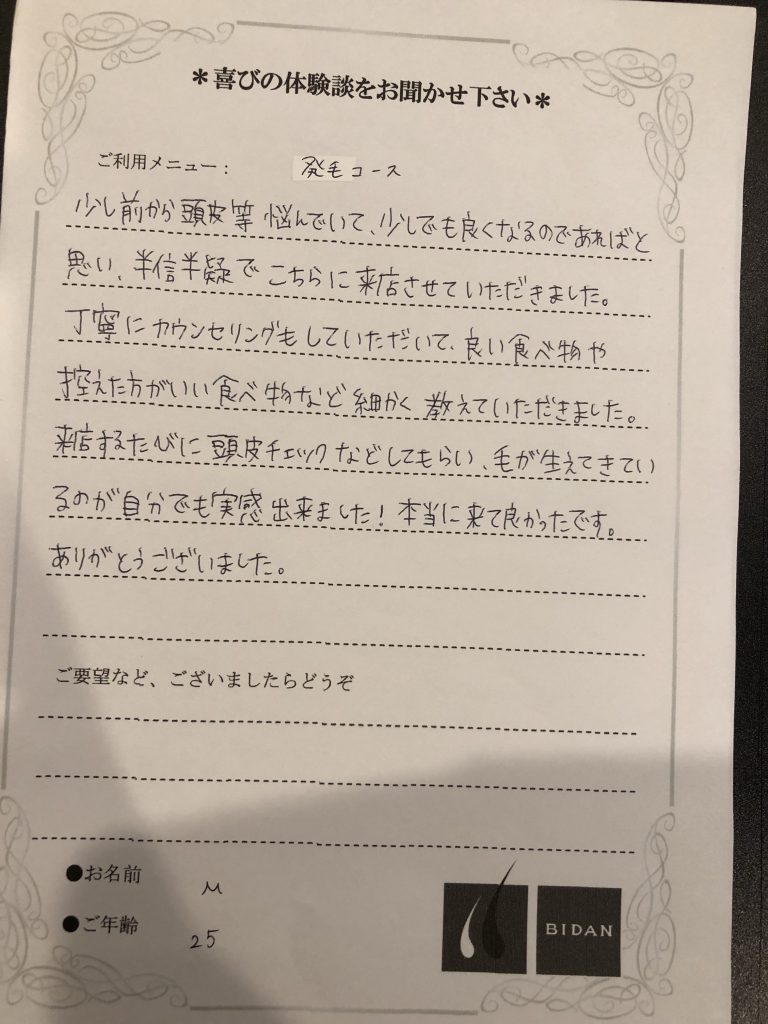 ＊喜びの体験談をお聞かせ下さい＊
ご利用メニュー： 発毛コース
少し前から頭皮等悩んでいて、少しでも良くなるのであればと
思い、半信半疑でこちらに来店させていただきました。
丁寧にカウンセリングもしていただいて、良い食べ物や
控えた方がいい食べ物など細かく教えていただきました。
来店するたびに頭皮チェックなどしてもらい、毛が生えてきてい
るのが自分でも実感出来ました！本当に来て良かったです。
ありがとうございました。
ご要望など、ございましたらどうぞ
●お名前 M
●ご年齢 25
BIDAN